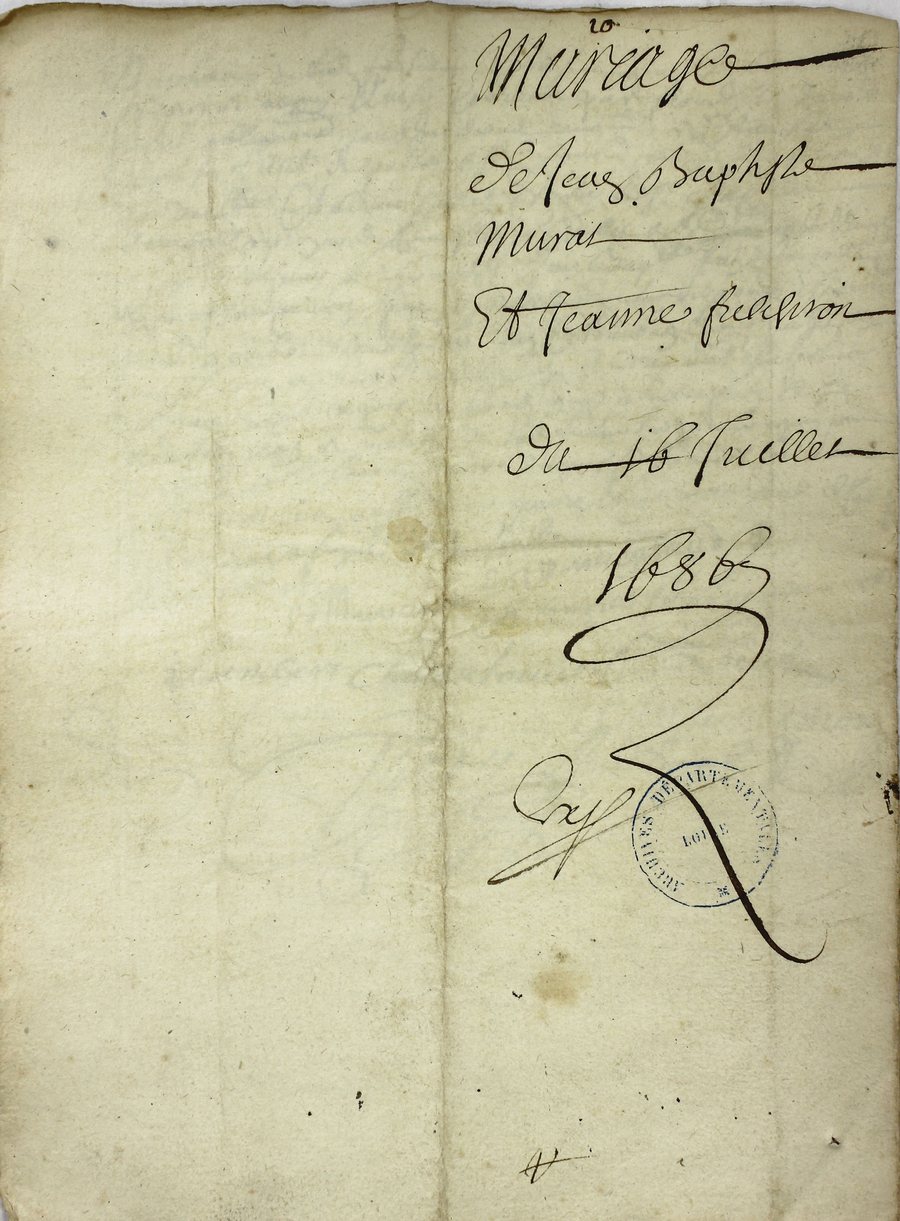 20
Mariage
de Jean Baptiste
Murat
Et Jeanne fulchiron
du 16 Juillet
1686
ARCHIVES DÉPARTEMENTALES
LOIRE